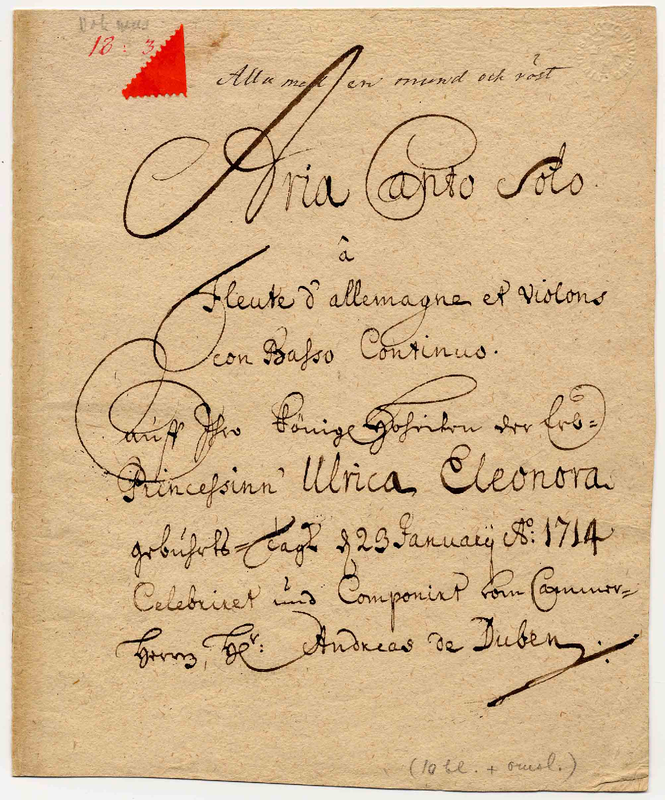 Vok mus
18:3
Alla med en mund och röst
Aria Canto Solo
â
Fleute d'allemagne et violons
con Basso Continuo.
auff Ihro Königl Hoheiten der Erb=
Princessinn Ulrica Eleonora
gebührts=Tagh d 23 January Aº: 1714
Celebriret und Componirt vom Cammer=
Herrn, Hr: Andreas de Duben
(10 bl. + omsl.)